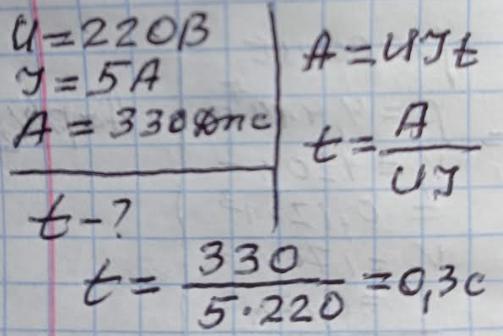 U = 220В
J = 5А
A = 330 Дж
t - ?
A = UJt
t = A / UJ
t = 330 / 5·220 = 0,3с